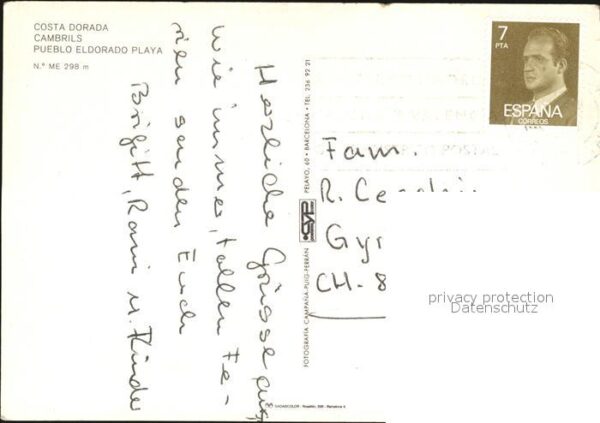 COSTA DORADA
CAMBRILS
PUEBLO ELDORADO PLAYA
N.º ME 298 m
Herzliche Grüsse aus
wie immer, tollen Fe-
rien senden Euch
Brigitt, Rami u. Kinder
FOTOGRAFÍA CAMPAÑÁ-PUIG-FERRÁN
CYP
PELAYO, 60 • BARCELONA • TEL. 236 92 21
7
PTA
ESPAÑA
CORREOS
Fam.
R.
Gyr
CH-8
privacy protection
Datenschutz